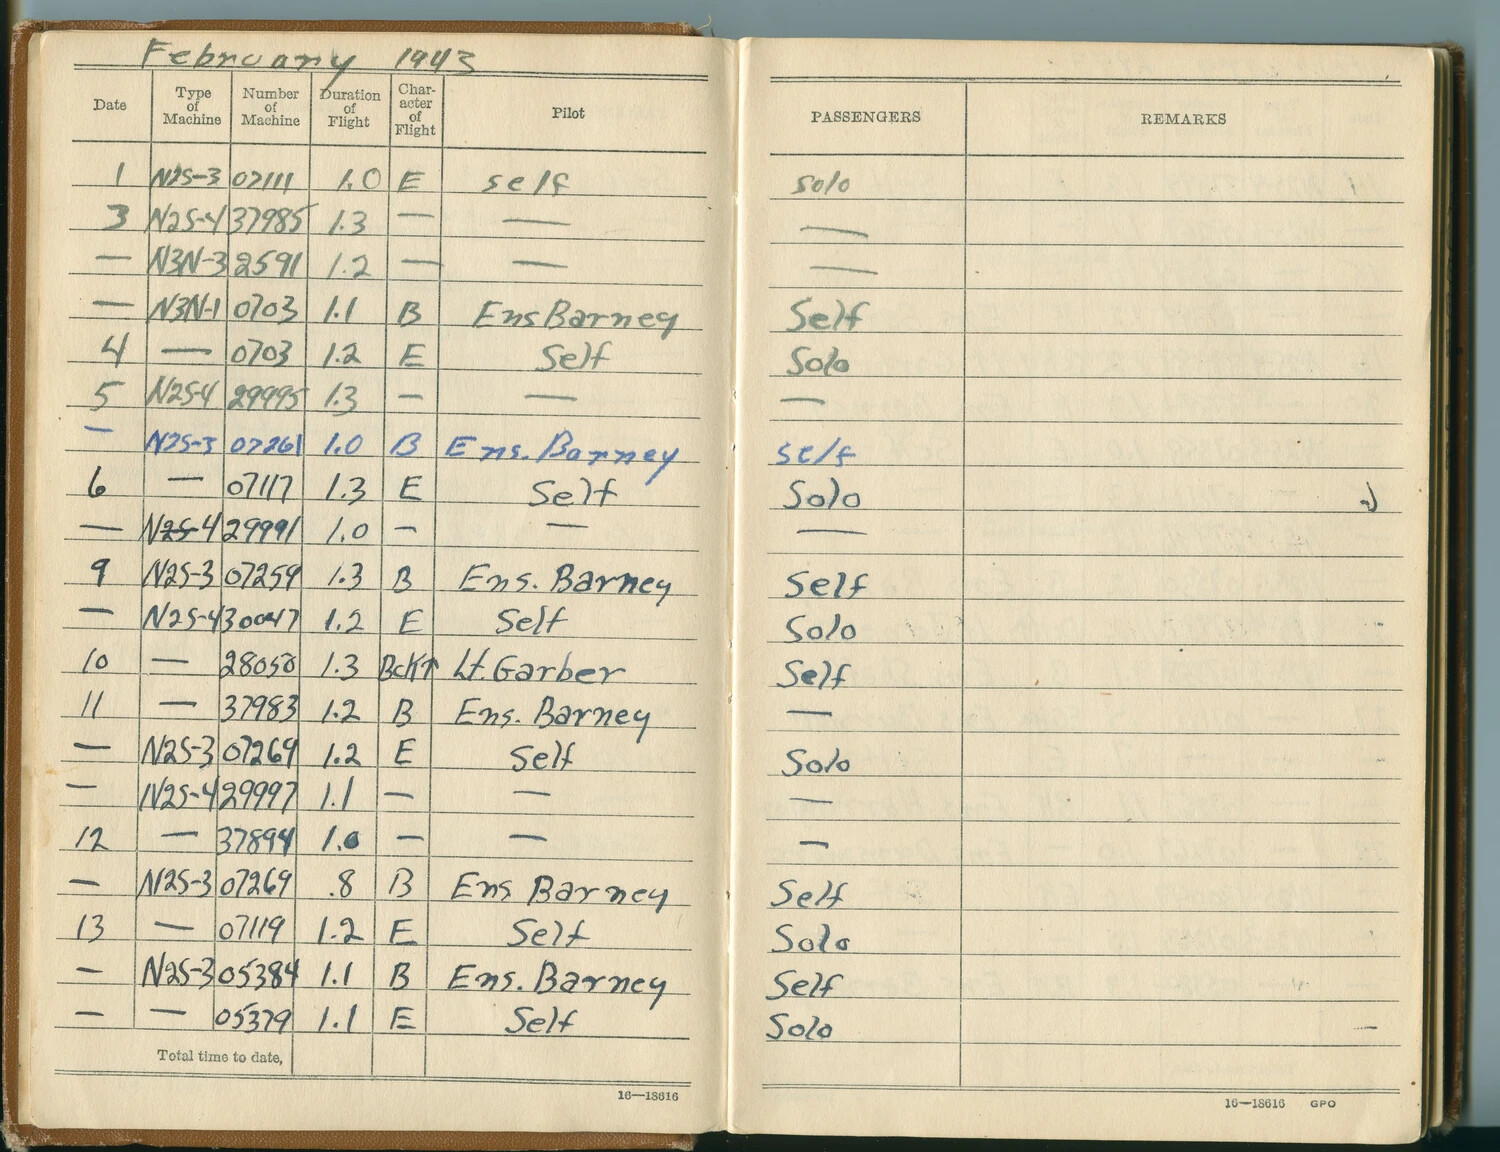 February 1943
Date Type of Machine Number of Machine Duration of Flight Char-acter of Flight Pilot PASSENGERS REMARKS
1 N2S-3 07111 1.0 E self solo
3 N2S-4 37985 1.3 — — —
— N3N-3 2591 1.2 — — —
— N3N-1 0703 1.1 B Ens Barney Self
4 — 0703 1.2 E Self Solo
5 N2S-4 29995 1.3 — — —
— N2S-3 07261 1.0 B Ens. Barney self
6 — 07117 1.3 E Self Solo
— N2S-4 29991 1.0 — — —
9 N2S-3 07259 1.3 B Ens. Barney Self
— N2S-4 30047 1.2 E Self Solo
10 — 28050 1.3 Lt. Garber Self
11 — 37983 1.2 B Ens. Barney —
— N2S-3 07269 1.2 E Self Solo
— N2S-4 29997 1.1 — — —
12 — 37894 1.0 — — —
— N2S-3 07269 .8 B Ens Barney Self
13 — 07119 1.2 E Self Solo
— N2S-3 05384 1.1 B Ens. Barney Self
— — 05379 1.1 E Self Solo
Total time to date,
16—18616 16—18616 GPO